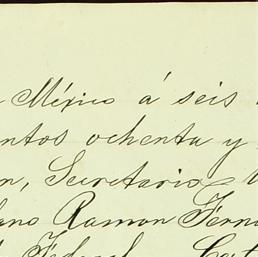 México á seis
ntos ochenta y
n, Secretario
ano Ramon Ferna
l Federal